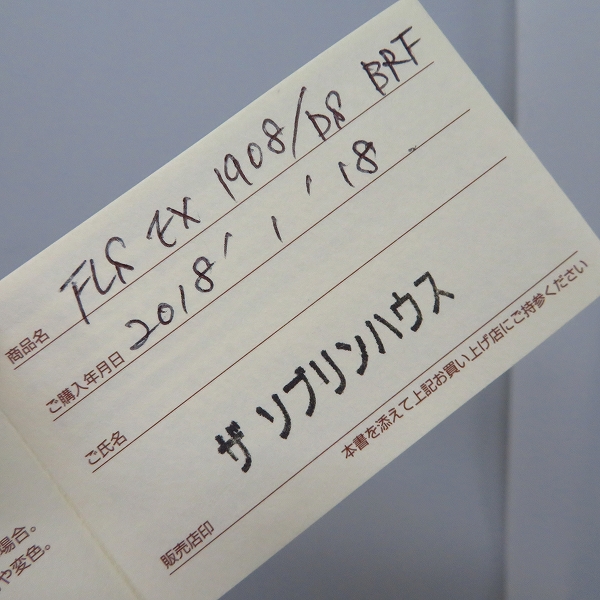 商品名 FLG EX 1908/D8 BRF
ご購入年月日 2018' 1 '18
ご氏名
ザ ソブリンハウス
販売店印
本書を添えて上記お買い上げ店にご持参ください
場合。
や変色。